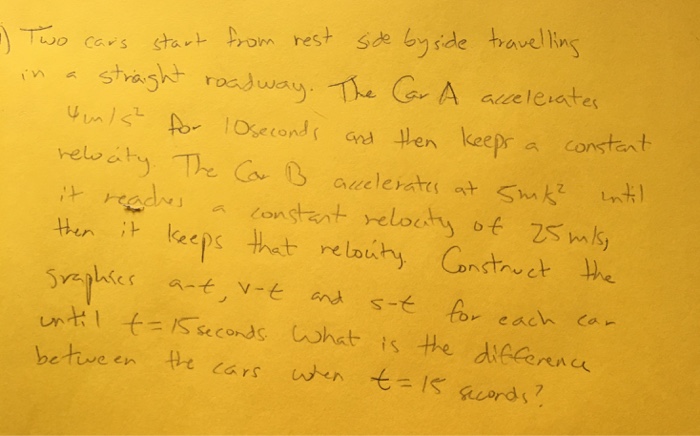 ) Two cars start from rest side by side travelling
in a straight roadway. The Car A accelerates
4m/s² for 10seconds and then keeps a constant
velocity. The Car B accelerates at 5m/s² until
it reaches a constant velocity of 25m/s,
then it keeps that velocity. Construct the
graphics a-t, v-t and s-t for each car
until t=15seconds. What is the difference
between the cars when t=15 seconds?